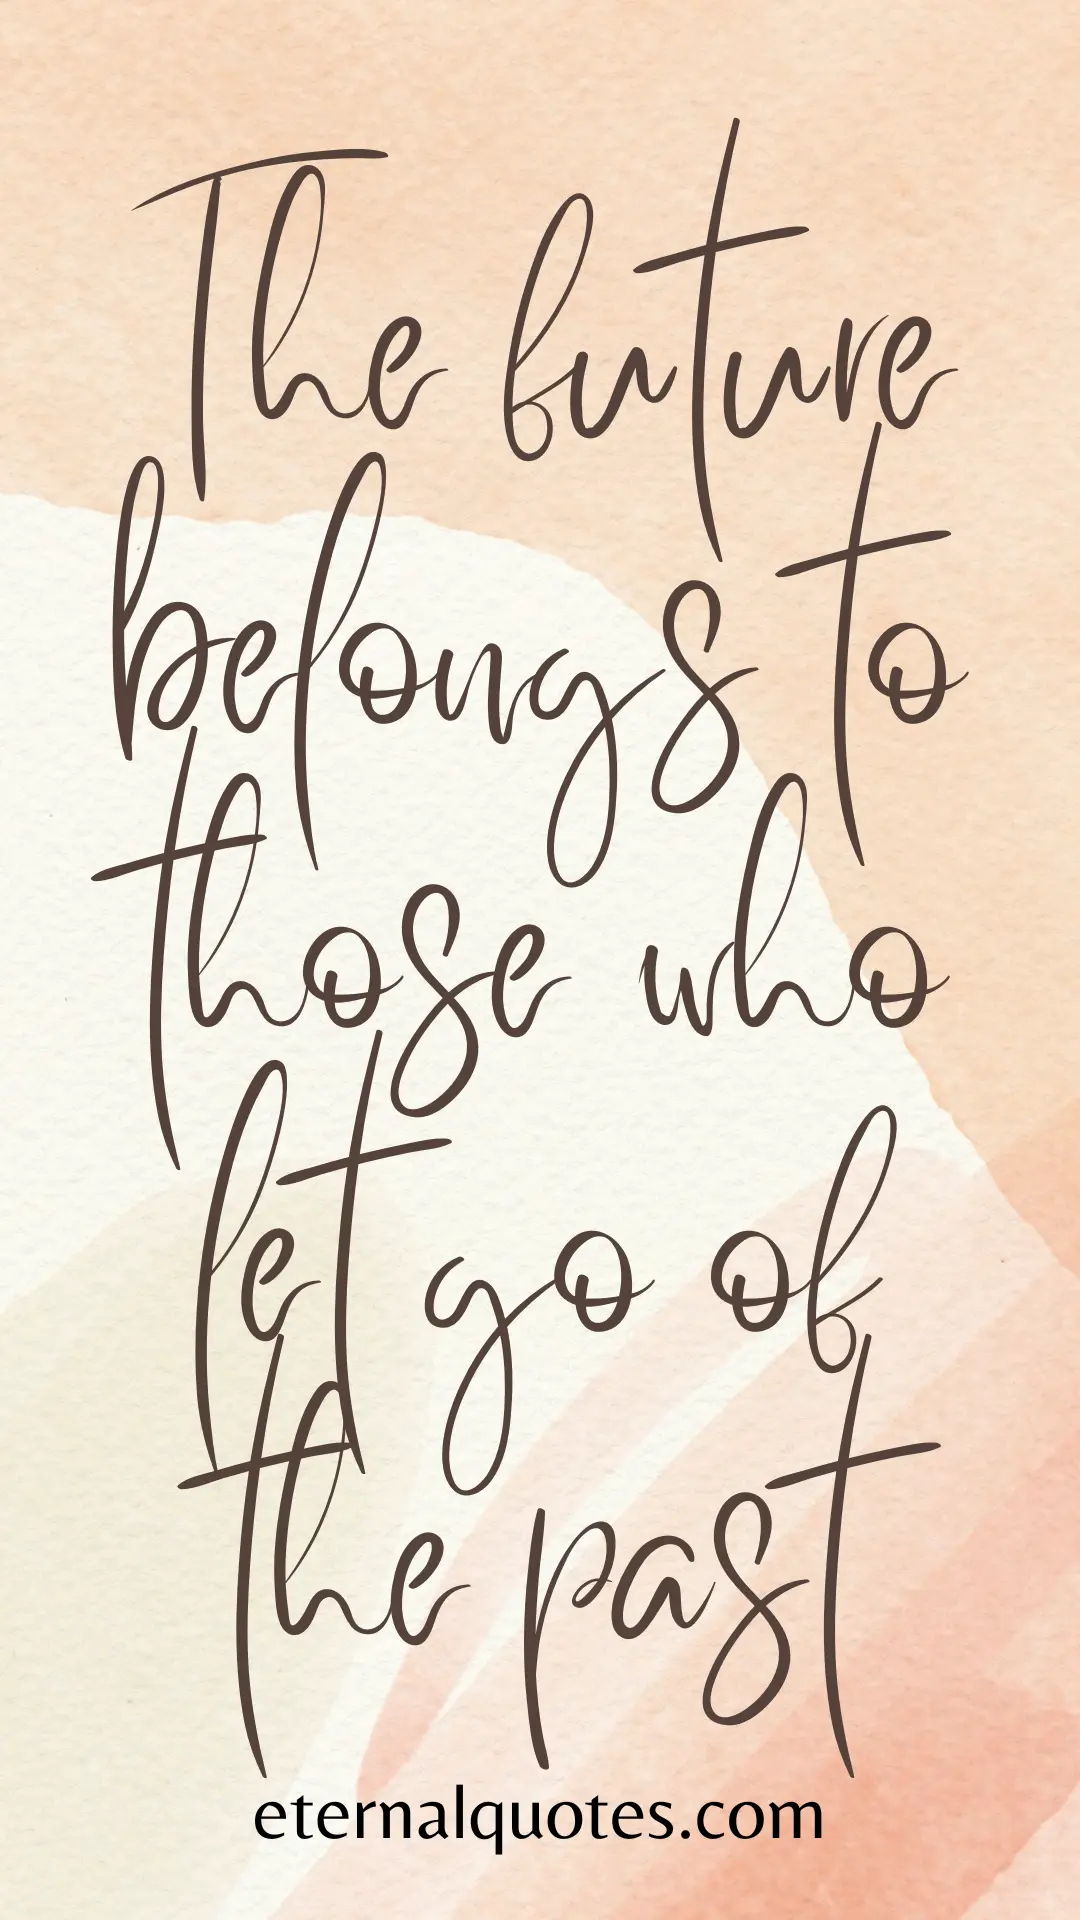 The future
belongs to
those who
let go of
the past
eternalquotes.com